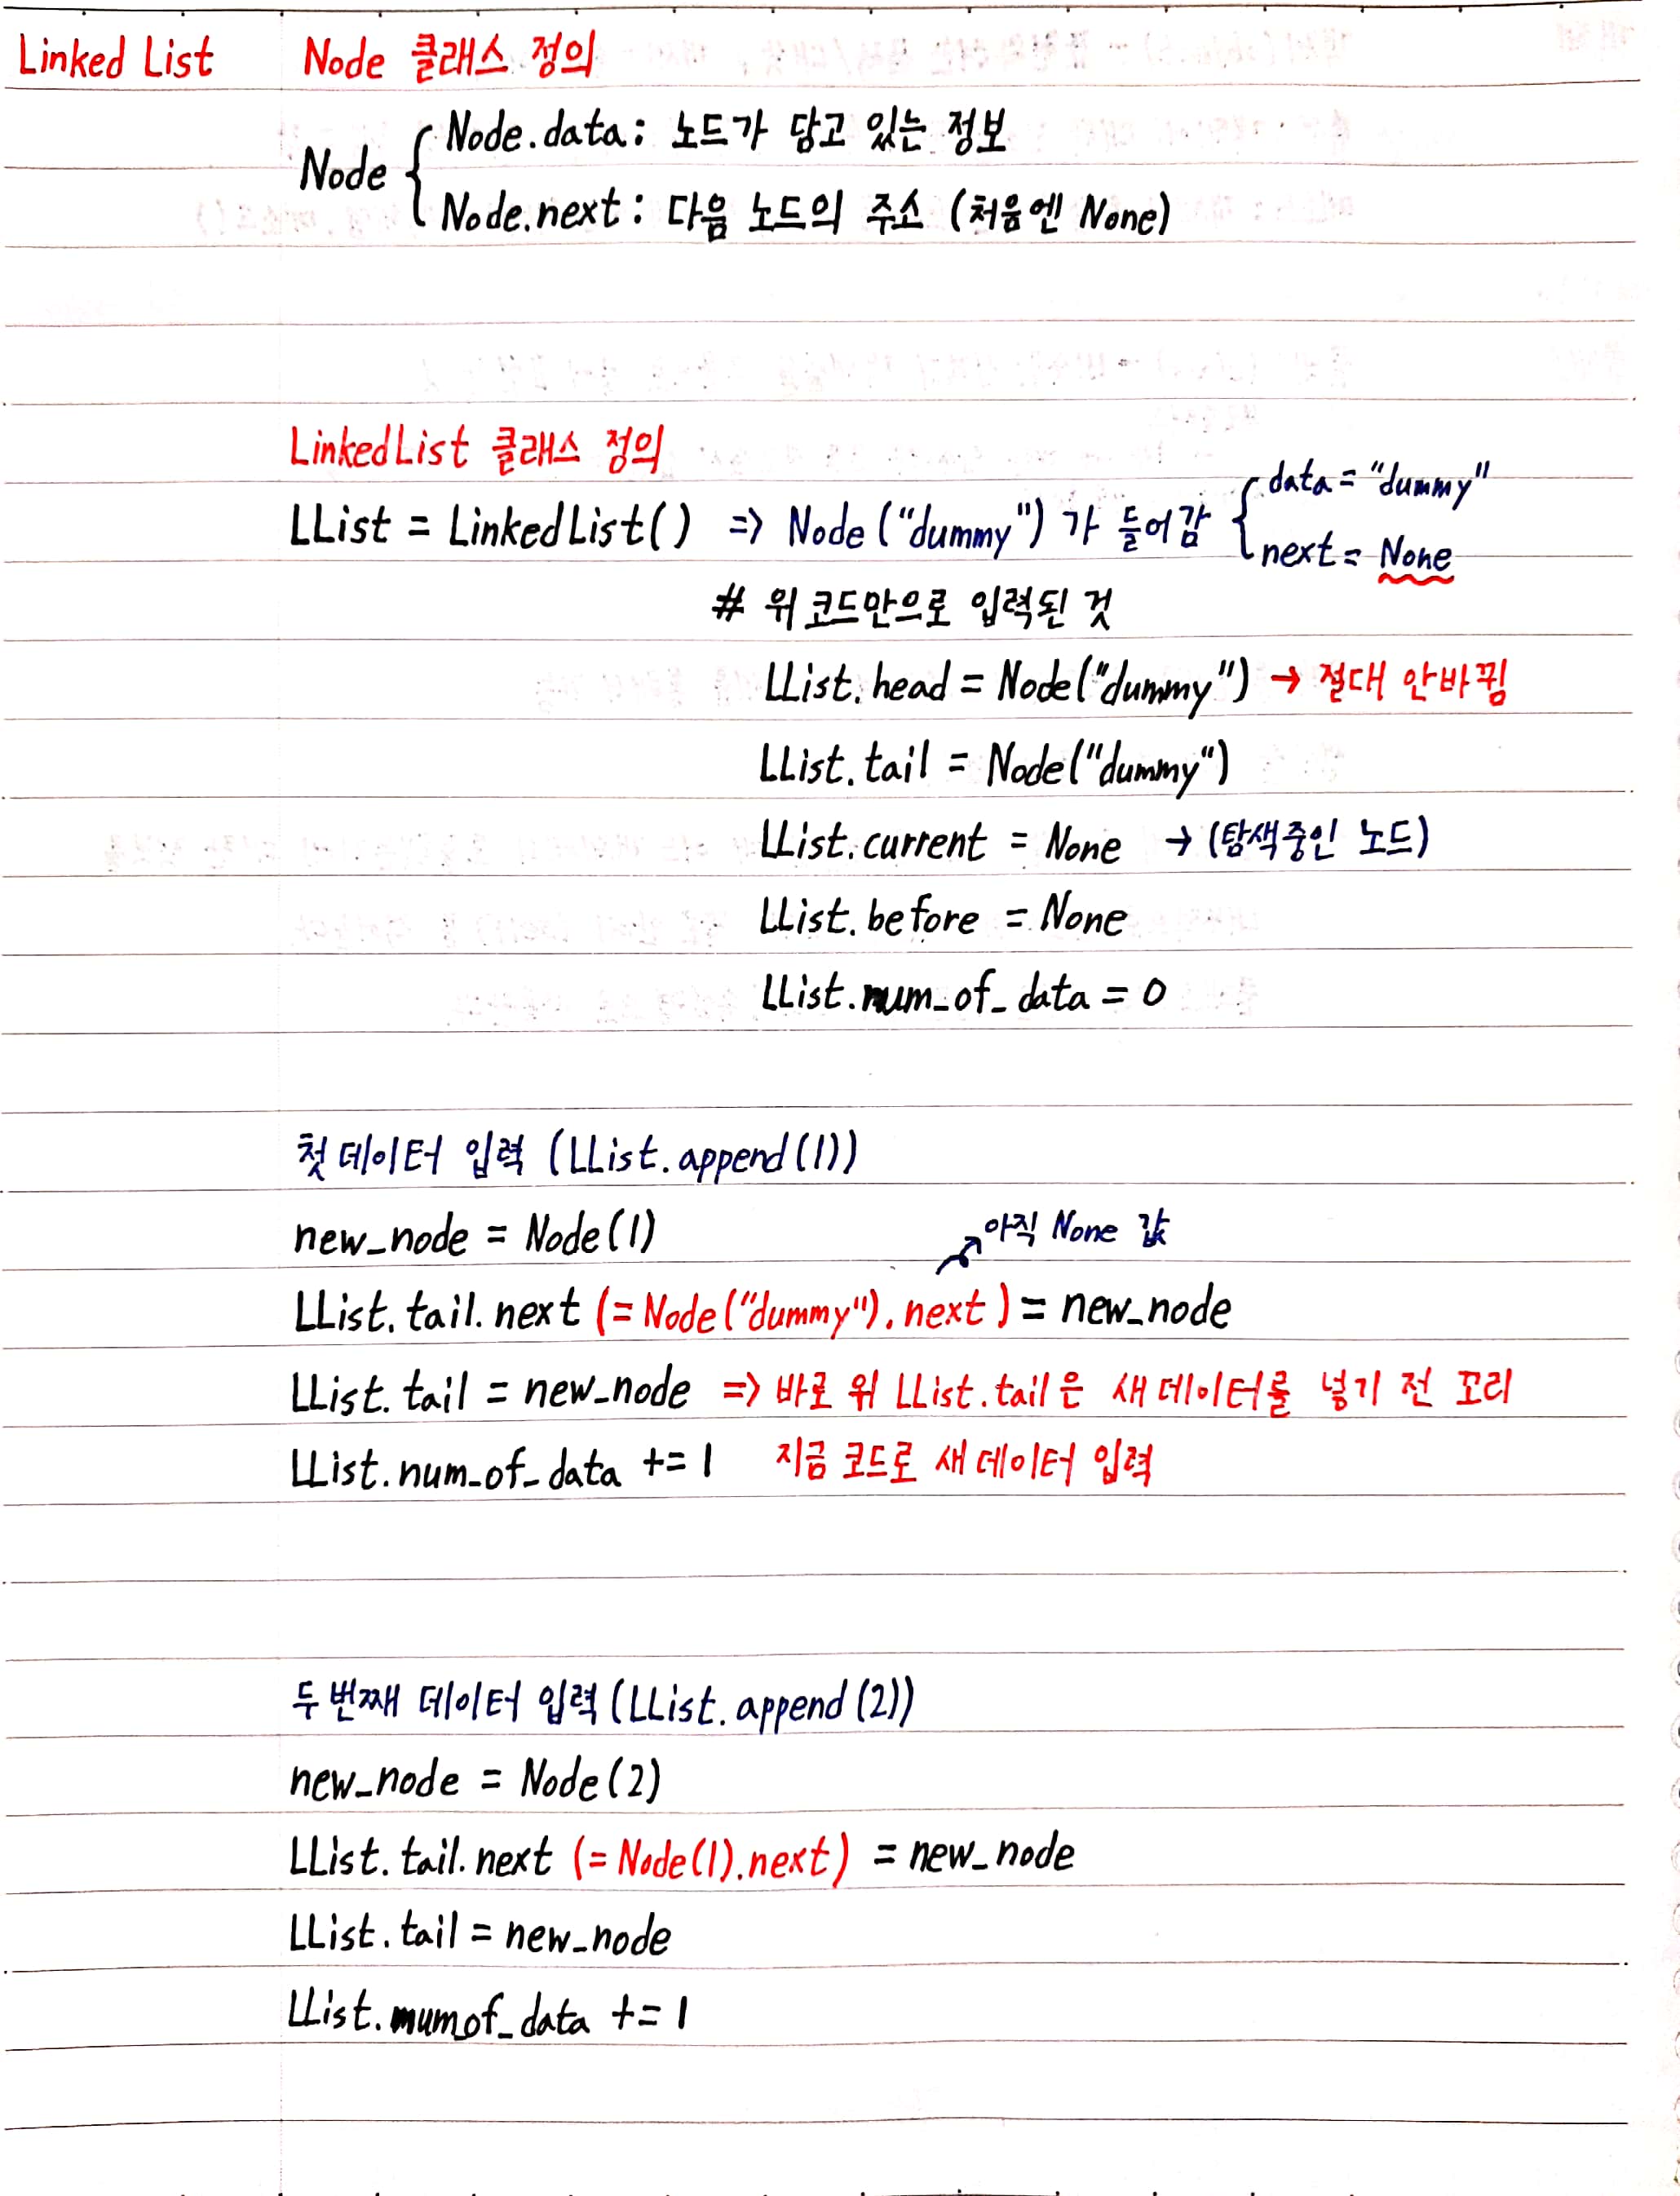 Linked List Node 클래스 정의
Node { Node.data: 노드가 담고 있는 정보
Node.next: 다음 노드의 주소 (처음엔 None)
LinkedList 클래스 정의
LList = LinkedList() => Node ("dummy") 가 들어감 { data = "dummy"
next = None
# 위 코드만으로 입력된 것
LList.head = Node("dummy") → 절대 안바뀜
LList.tail = Node("dummy")
LList.current = None → (탐색중인 노드)
LList.before = None
LList.num_of_data = 0
첫 데이터 입력 (LList.append(1))
new_node = Node(1)
아직 None 값
LList.tail.next (= Node("dummy").next) = new_node
LList.tail = new_node => 바로 위 LList.tail은 새 데이터를 넣기 전 꼬리
LList.num_of_data += 1 지금 코드로 새 데이터 입력
두 번째 데이터 입력 (LList.append(2))
new_node = Node(2)
LList.tail.next (= Node(1).next) = new_node
LList.tail = new_node
LList.numof_data += 1